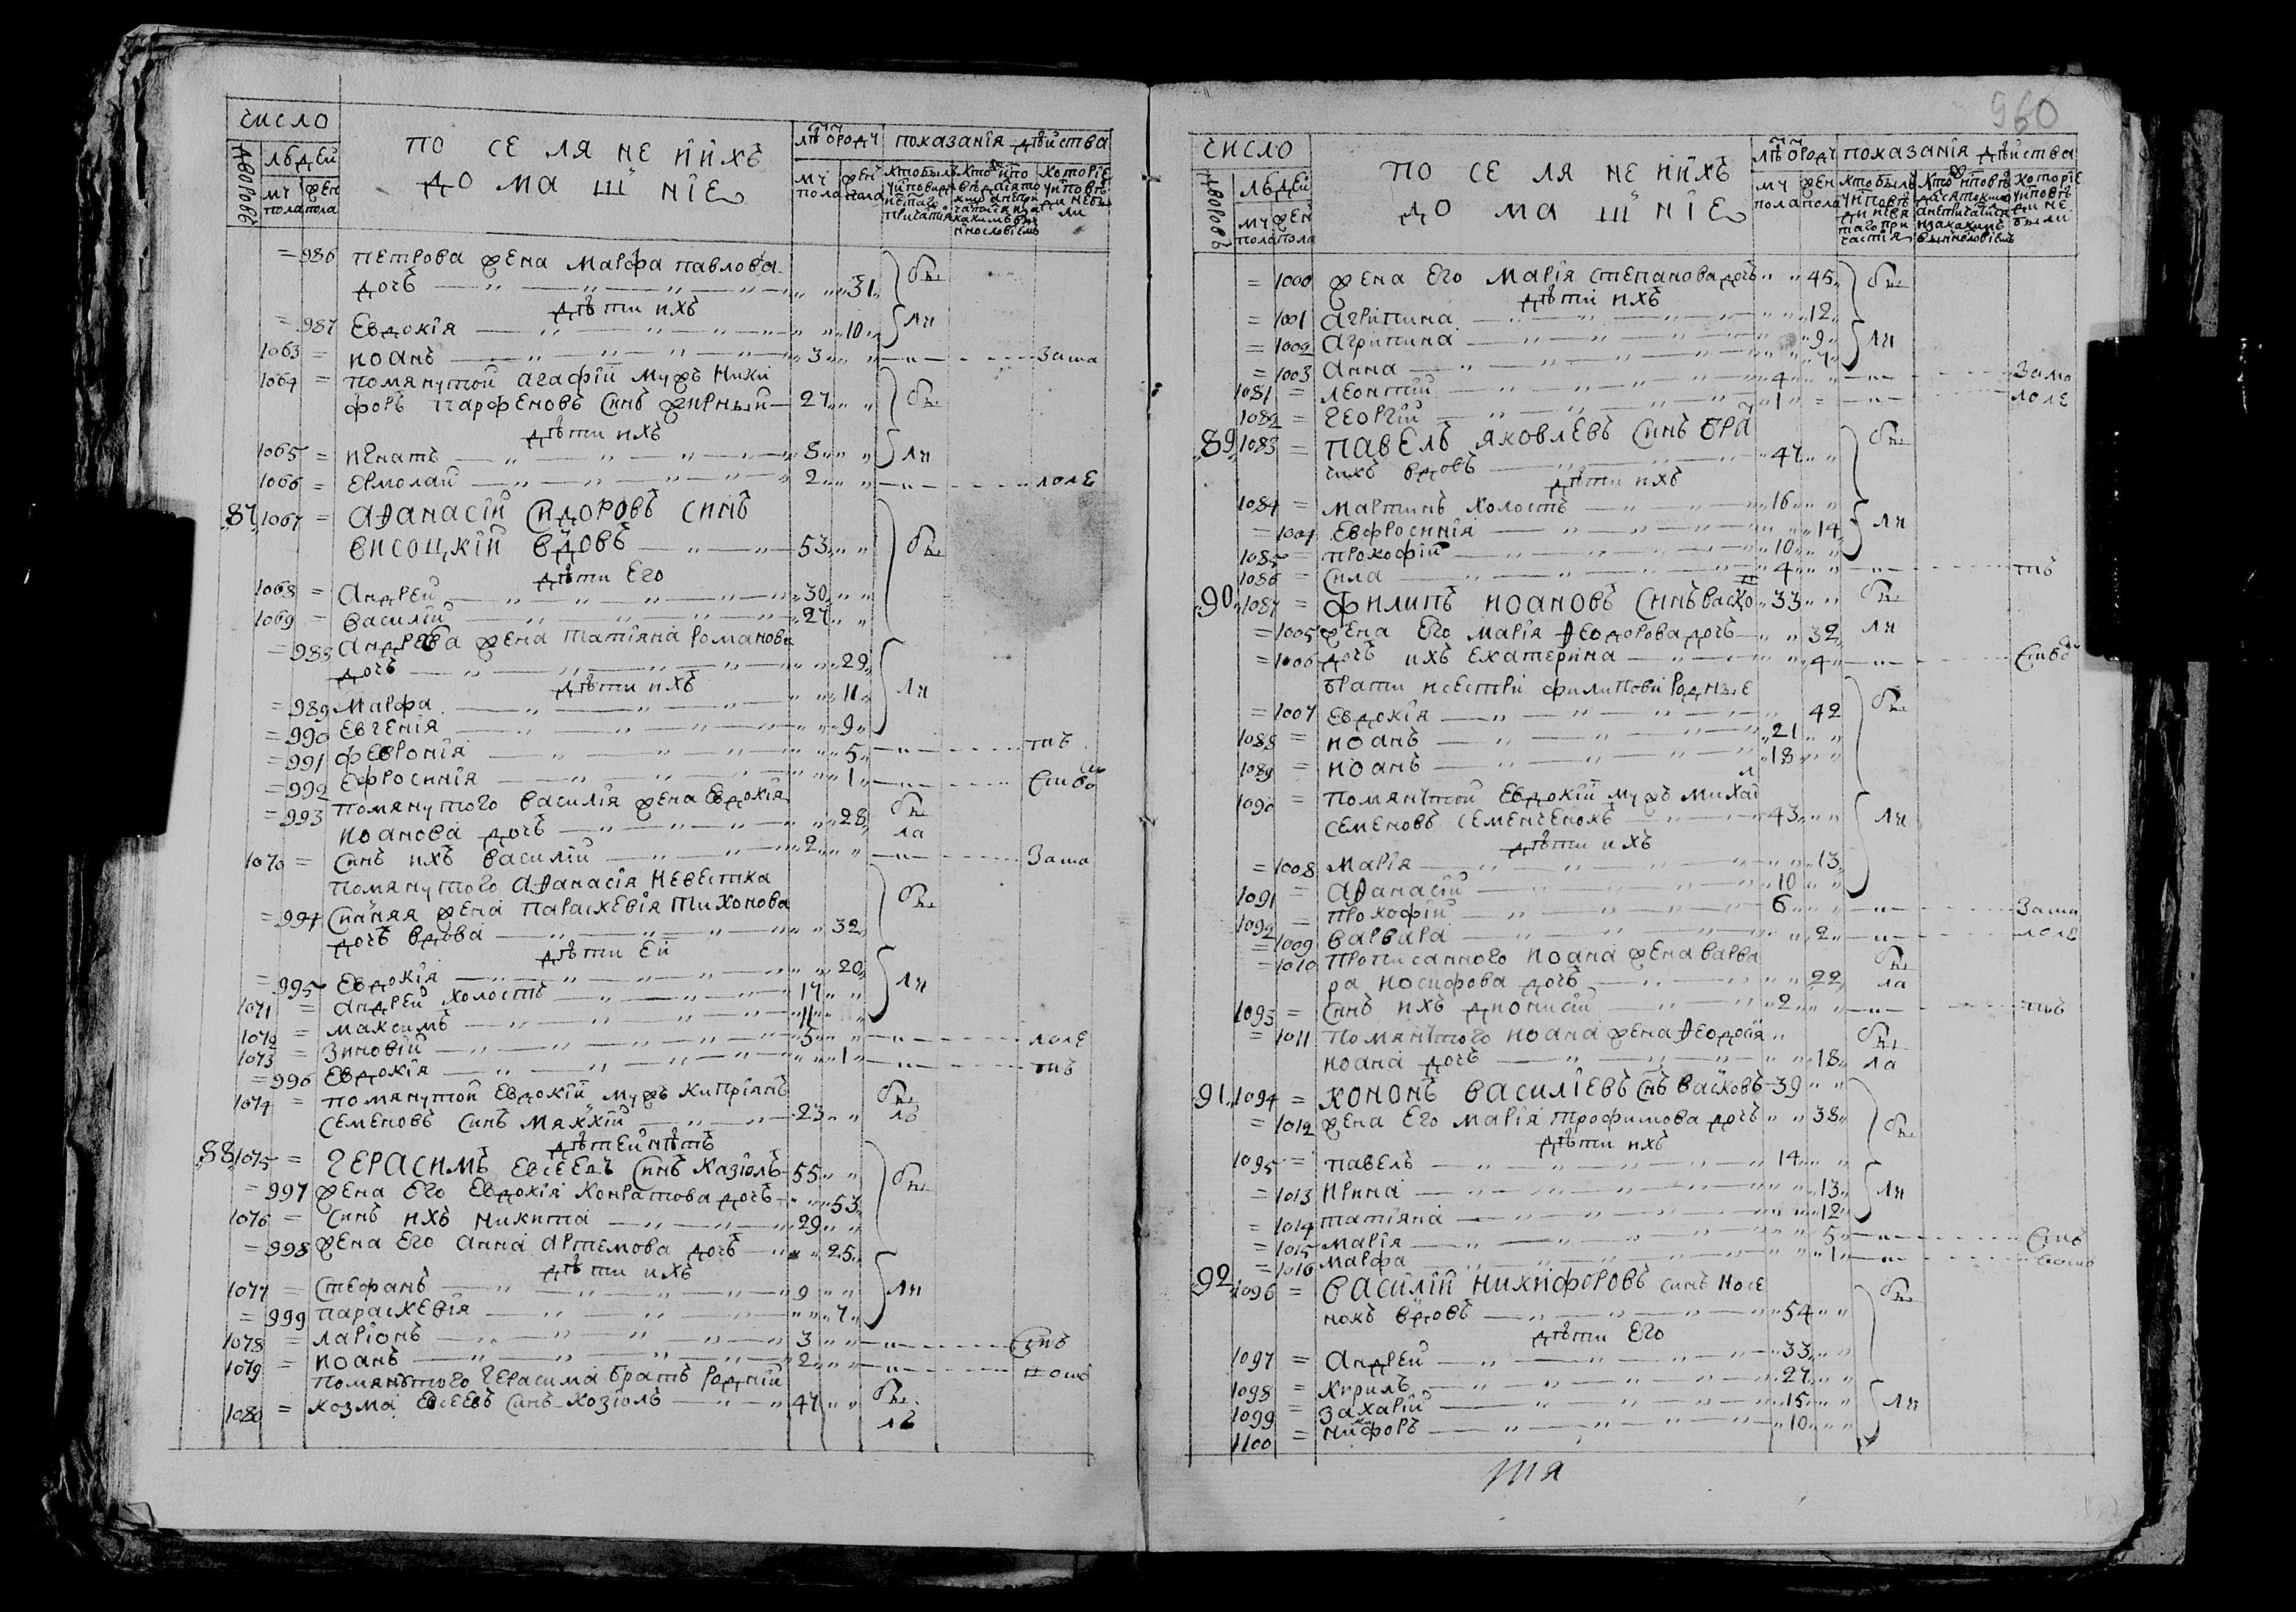 число
дворовъ
людей
мч пола
жен пола
ПО СЕ ЛЯ НЕ НЙИХЪ
ДО МА ШНІЕ
лѣ ородч
мч пола
жен пола
показанія дѣйства
= 986 петрова жена Марфа павлова
дочъ 31
бы
дѣти ихъ
= 987 Евдокія 10 ли
1063 = иоанъ 3 за ма
1064 = помянутой агафіи мужъ Ники
форъ парфеновъ синъ жирный 27 бы
дѣти ихъ
1065 = игнатъ 8 ли
1066 = ермолаи 2 лолѣ
87 1067 = Аѳанасій Сидоровъ синъ
висоцкій вдовъ 53 бы
дѣти Его
1068 = Андрей 30
1069 = василій 27
= 988 Андрева жена татіяна романова
дочъ 29
дѣти ихъ
= 989 Марфа 11 ли
= 990 Евгенія 9
= 991 февронія 5 тв
= 992 Ефросинія 1
= 993 помянутого василія жена Евдокія
иоанова дочъ 28 бы
ла
1070 = синъ ихъ василій 2 за ма
помянутого аѳанасія невестка
= 994 синяя жена параскевія тихонова
дочъ вдова 32 бы
дѣти Еи
= 995 Евдокія 20 ли
1071 = андрей холостъ 17
1072 = максимъ 11
1073 = зиновій 5 лолѣ
= 996 Евдокія 1 тв
1074 = помянутой Евдокіи мужъ Кипріянъ
семеновъ синъ мяккій 23 бы
лъ
дѣтей нѣтъ
88 1075 = Герасимъ Евсеевъ синъ Казіолъ 55 бы
= 997 жена Его Евдокія Конратова дочъ 53
1076 = синъ ихъ никита 29
= 998 жена Его Анна Артемова дочъ 25
дѣти ихъ
1077 = стефанъ 9 ли
= 999 параскевія 7
1078 = ларіонъ 3
1079 = иоанъ 2
помянутого Герасима братъ родній
1080 = козма Евсеевъ синъ козіолъ 47 бы
лъ
960
число
дворовъ
людей
мч пола
жен пола
ПО СЕ ЛЯ НЕ НЙИХЪ
ДО МА ШНІЕ
лѣ ородч
мч пола
жен пола
показанія дѣйства
= 1000 жена Его Марія степанова дочъ 45 бы
дѣти ихъ
= 1001 агрипина 12
= 1002 агрипина 9 ли
= 1003 анна 7
1081 = леонтій 4 за мо
1082 = георгій 1 лолѣ
89 1083 = павелъ яковлевъ синъ бра
чихъ вдовъ 47 бы
дѣти ихъ
1084 = мартинъ холостъ 16
= 1004 Евфросинія 14 ли
1085 = прокофій 10
1086 = сила 4 тв
90 1087 = филипъ иоановъ синъ васко 33 бы
= 1005 жена Его марія ѳеодорова дочъ 32 ли
= 1006 дочъ ихъ екатерина 4
брати исестри филипови родныѣ
= 1007 Евдокія 42 бы
1088 = иоанъ 21
1089 = иоанъ 18
1090 = помянтой Евдокіи мужъ михаи
семеновъ семенченокъ 43 ли
дѣти ихъ
= 1008 Марія 13
1091 = аѳанасій 10
1092 = прокофій 6 за ма
= 1009 варвара 2 лолѣ
= 1010 прописанного иоана жена варва
ра иосифова дочъ 22 бы
ла
1093 = синъ ихъ дионисій 2 тв
= 1011 помянтого иоана жена ѳеодосія
иоана дочъ 18 бы
ла
91 1094 = кононъ василіевъ снъ васковъ 39
= 1012 жена Его марія трофимова дочъ 38 бы
дѣти ихъ
1095 = павелъ 14
= 1013 ирина 13 ли
= 1014 татіяна 12
= 1015 марія 5
= 1016 марфа 1
92 1096 = василій никифоровъ синъ носе
нокъ вдовъ 54 бы
дѣти Его
1097 = андрей 33
1098 = кирилъ 27
1099 = захарій 15 ли
1100 = никифоръ 10
тія